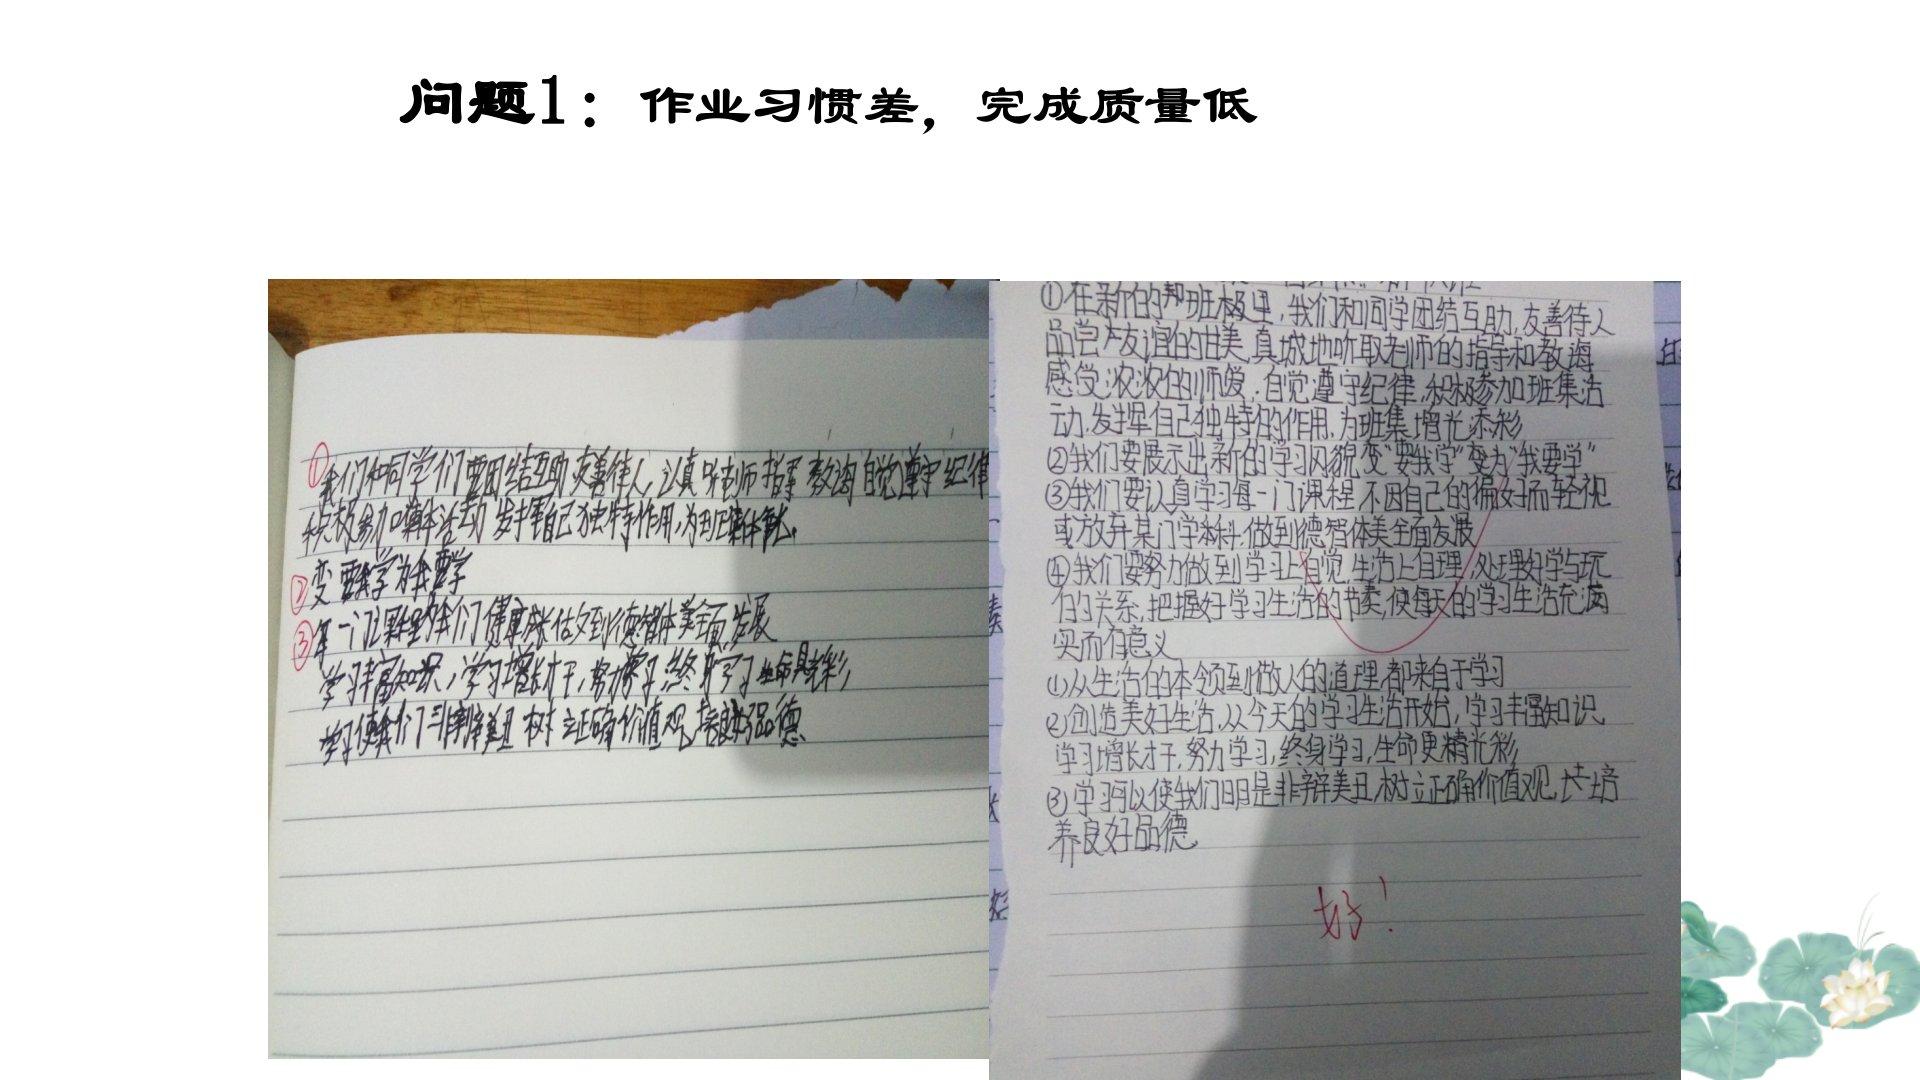 问题1：作业习惯差，完成质量低
①我们和同学们要团结互助友善待人,认真听老师指导 教诲 自觉遵守纪律
积极参加集体活动 发挥自己独特作用,为班集体
② 变要我学为我要学
③每一门课程 我们健康成长做到德智体美全面发展
学习丰富知识,学习增长才干,努力学习,终身学习 生命更精彩
学习使我们 是非辨美丑 树立正确价值观,培养良好品德
①在新的 班级里,我们和同学团结互助,友善待人
品尝友谊的甘美,真诚地听取老师的指导和教诲
感受浓浓的师爱.自觉遵守纪律,积极参加班集活
动.发挥自己独特的作用,为班集增光添彩
②我们要展示出新的学习风貌,变"要我学"变为"我要学"
③我们要认真学习每一门课程 不因自己的偏好而轻视
或放弃某门学科.做到德智体美全面发展
④我们要努力做到学习上自觉,生活上自理,处理好学与玩
的关系,把握好学习生活的节奏,使每天的学习生活充满
实而有意义
①从生活的本领到做人的道理,都来自于学习
②创造美好生活,从今天的学习生活开始,学习丰富知识,
学习增长才干,努力学习,终身学习,生命更精光彩
③学习可以使我们明是非辩美丑,树立正确价值观,培
养良好品德.
好!